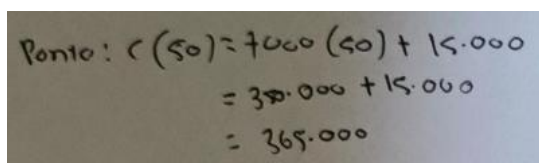 Ponto: C(50) = 7000 (50) + 15.000
= 350.000 + 15.000
= 365.000